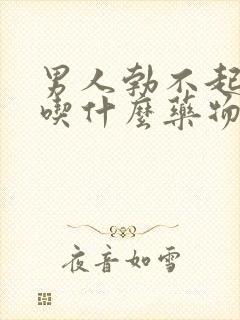 男人勃不起
喫什麼藥物
夜音如雪